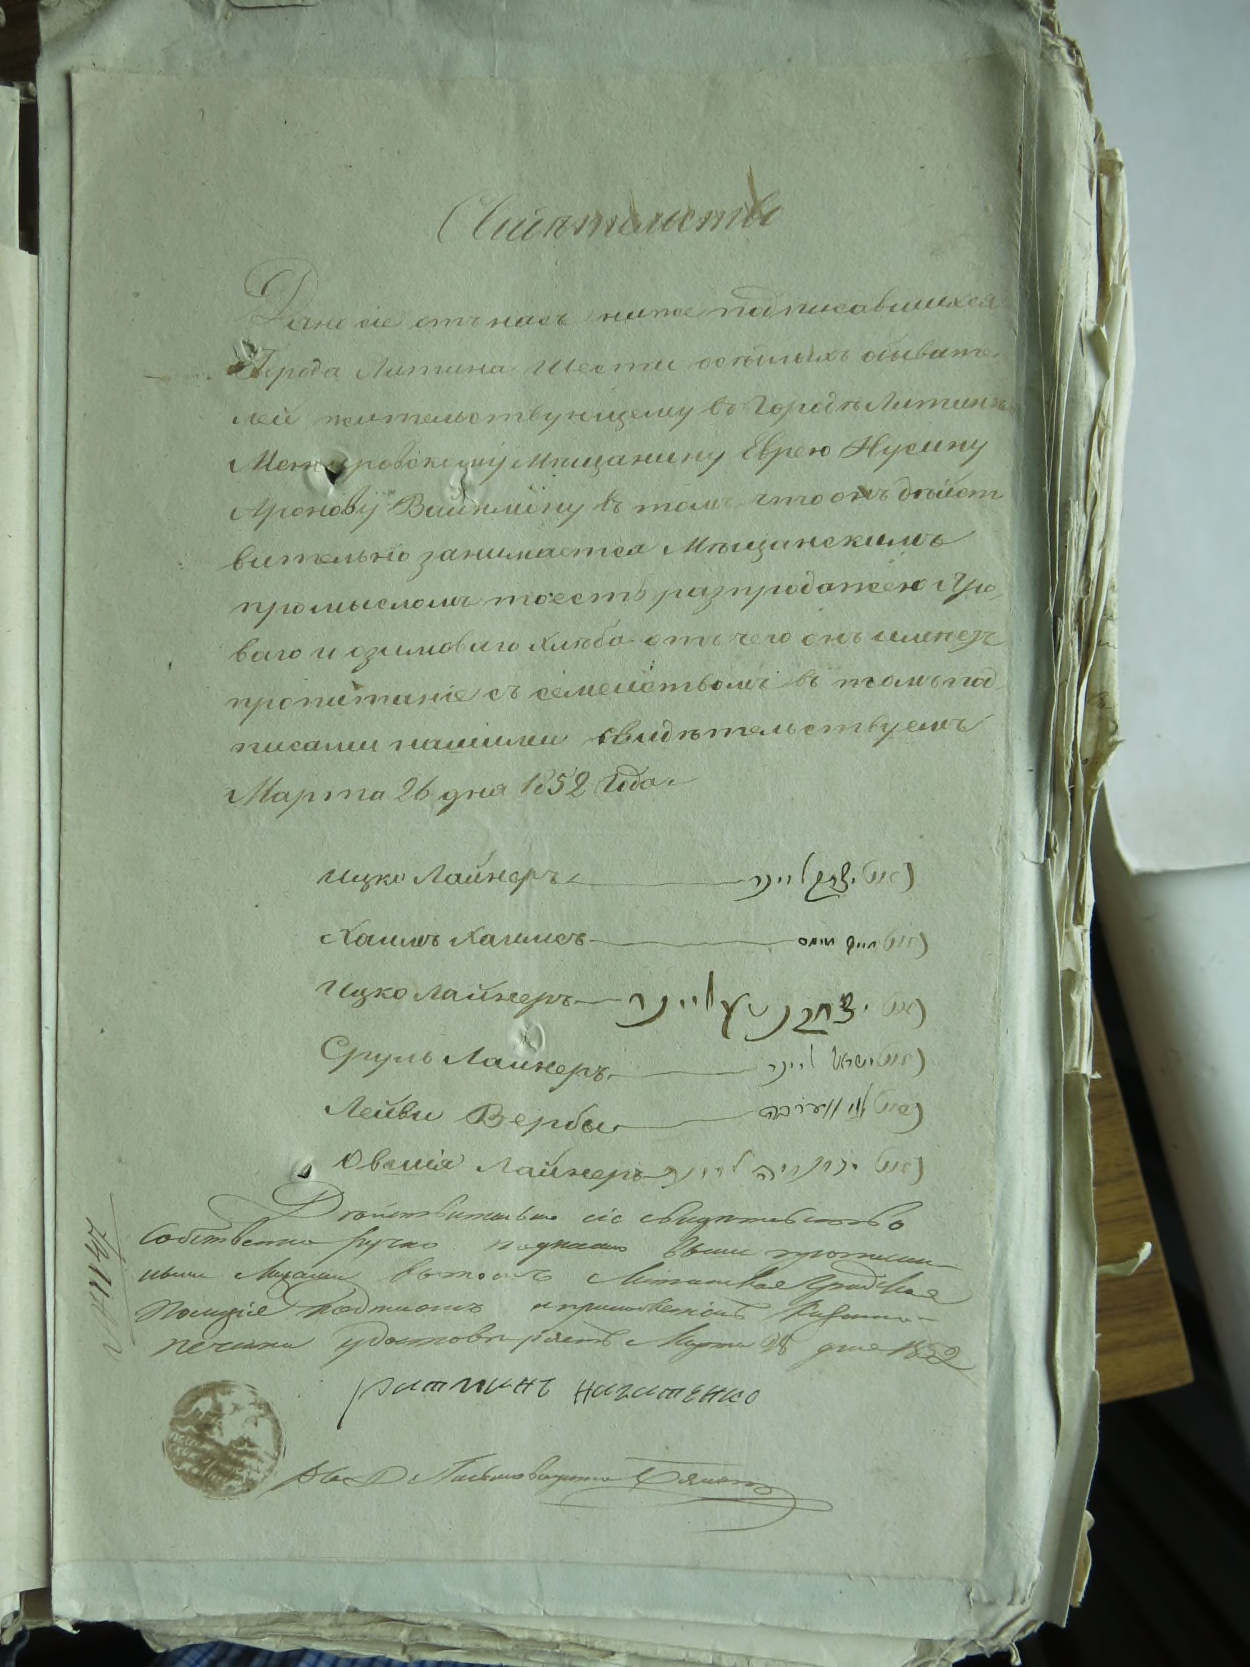 Свидѣтельство
Дано сіе отъ насъ ниже подписавшихся
Города Литина Шести осѣдлыхъ обывате
лей жительствующему въ Городѣ Литинѣ
Межировскому Мѣщанину Еврею Нусину
Аронову Вайнману въ томъ что онъ дѣйст
вительно занимается Мѣщанскимъ
промысломъ тоесть разпродажею Яро
ваго и озимоваго хлѣба отъ чего онъ имѣетъ
пропитаніе съ семействомъ въ томъ под
писами нашими свидѣтельствуемъ
Марта 26 дня 1852 Года
Ицко Лайнеръ יצחק ליינר
Хаимъ Хаимсъ חיים חיימס
Ицко Лайнеръ יצחק ליינר
Сруль Лайнеръ ישראל ליינר
Лейви Вербы לוי ווערבה
Овшія Лайнеръ ליינר
Дѣйствительно сіе свидѣтельство
собственно ручно подписано выше прописан
ными Лицами въ томъ Литинская Градская
Полиція подписомъ и приложеніемъ казенной
печати удостовѣряетъ Марта 28 дня 1852
Никитенко
Письмоводитель